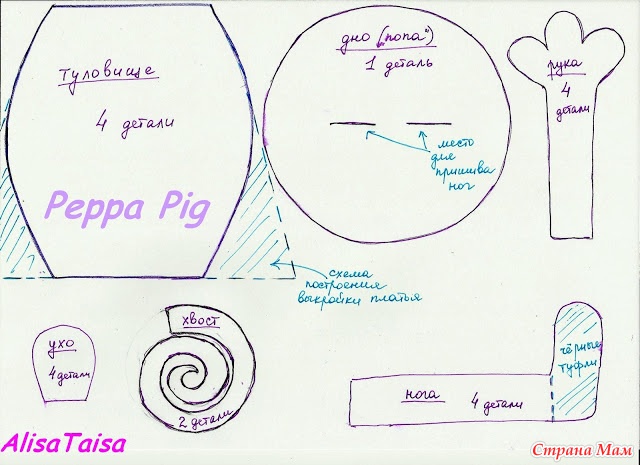 туловище
4 детали
Peppa Pig
дно ("попа")
1 деталь
место
для
пришива
ног
рука
4
детали
схема
построения
выкройки платья
ухо
4 детали
хвост
2 детали
чёрные
туфли
нога 4 детали
AlisaTaisa
Страна Мам